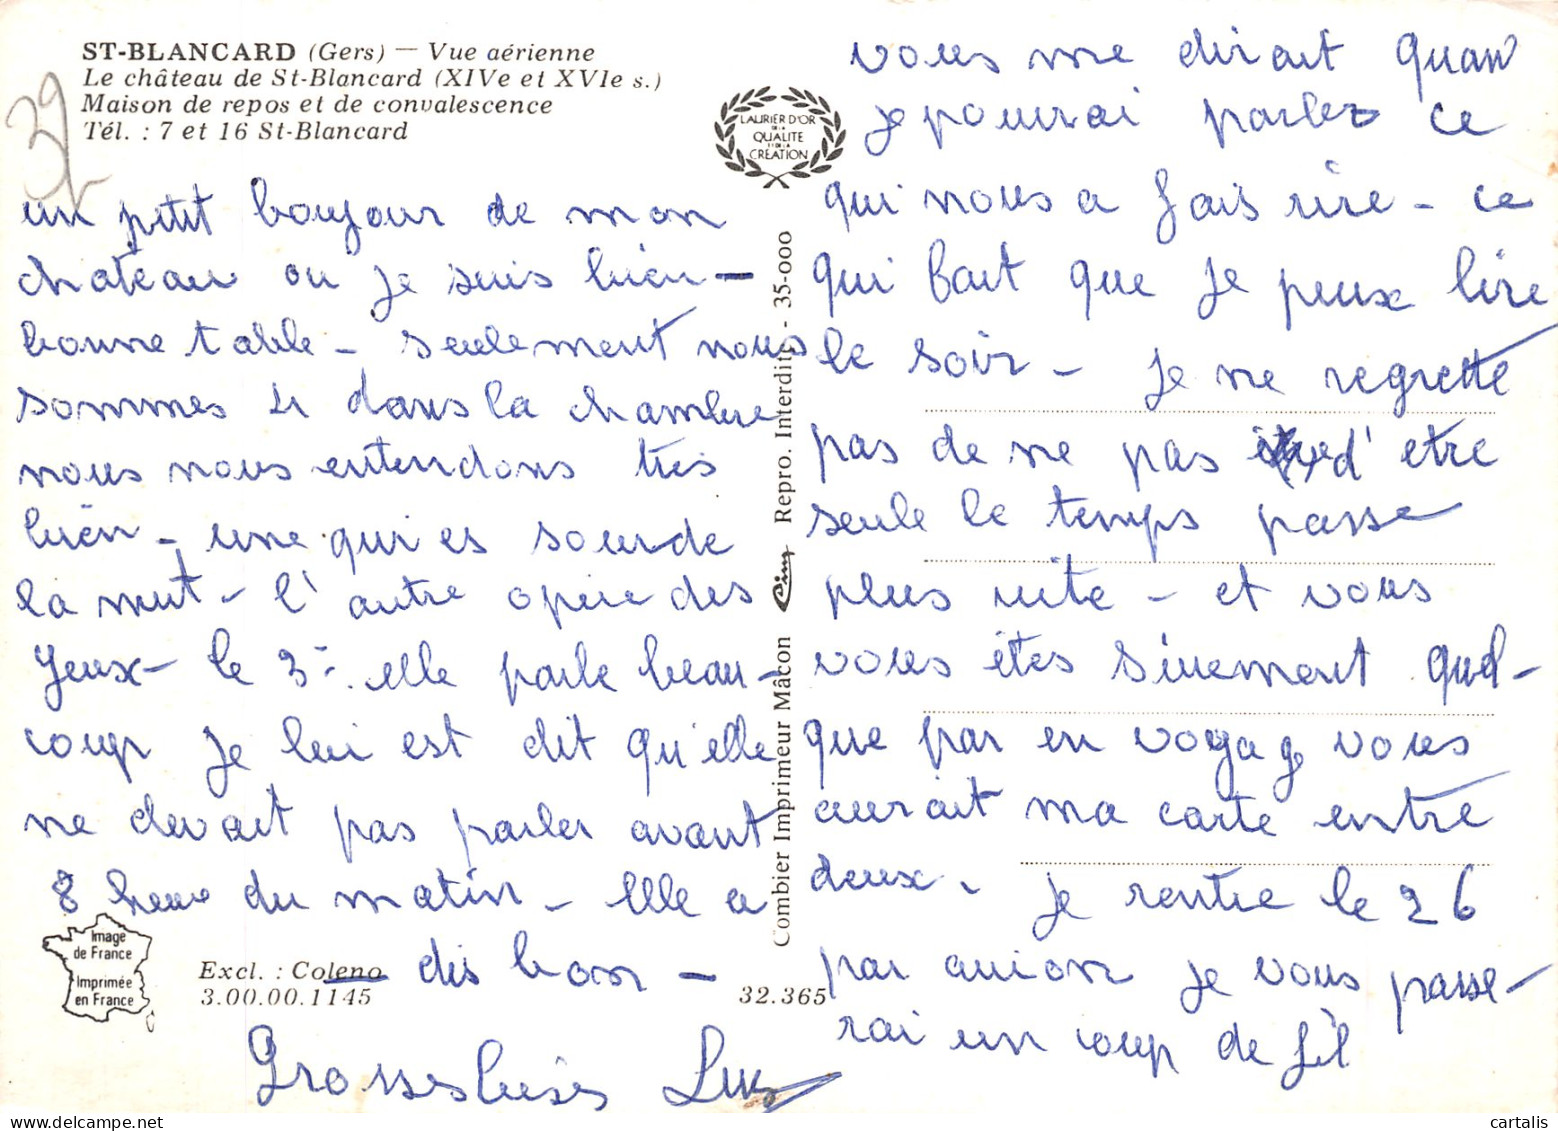 ST-BLANCARD (Gers) — Vue aérienne
Le château de St-Blancard (XIVe et XVIe s.)
Maison de repos et de convalescence
Tél. : 7 et 16 St-Blancard
32
LAURIER D'OR
DE LA
QUALITE
ET DE LA
CREATION
un petit boujour de mon
chateau ou je suis bien —
bonne table — seulement nous
sommes 4 dans la chambre
nous nous entendons tres
bien — une qui es sourde
la nuit — l'autre opere des
yeux — le 3e elle parle beau-
coup je lui est dit qu'elle
ne devait pas parler avant
8 heure du matin — Elle a
dis bon —
Grosses bises Luz
Combier Imprimeur Mâcon Cim Repro. Interdite - 35-000
vous me dirait quand
je pourrai parlez ce
qui nous a fais rire — ce
qui fait que je peux lire
le soir — je ne regrette
pas de ne pas d'etre
seule le temps passe
plus vite — et vous
vous êtes sinement quel-
que par en voyage vous
aurait ma carte entre
deux. je rentre le 26
par avion je vous passe-
rai un coup de fil
Image
de France
Imprimée
en France
Excl. : Coleno
3.00.00.1145
32.365
cartalis